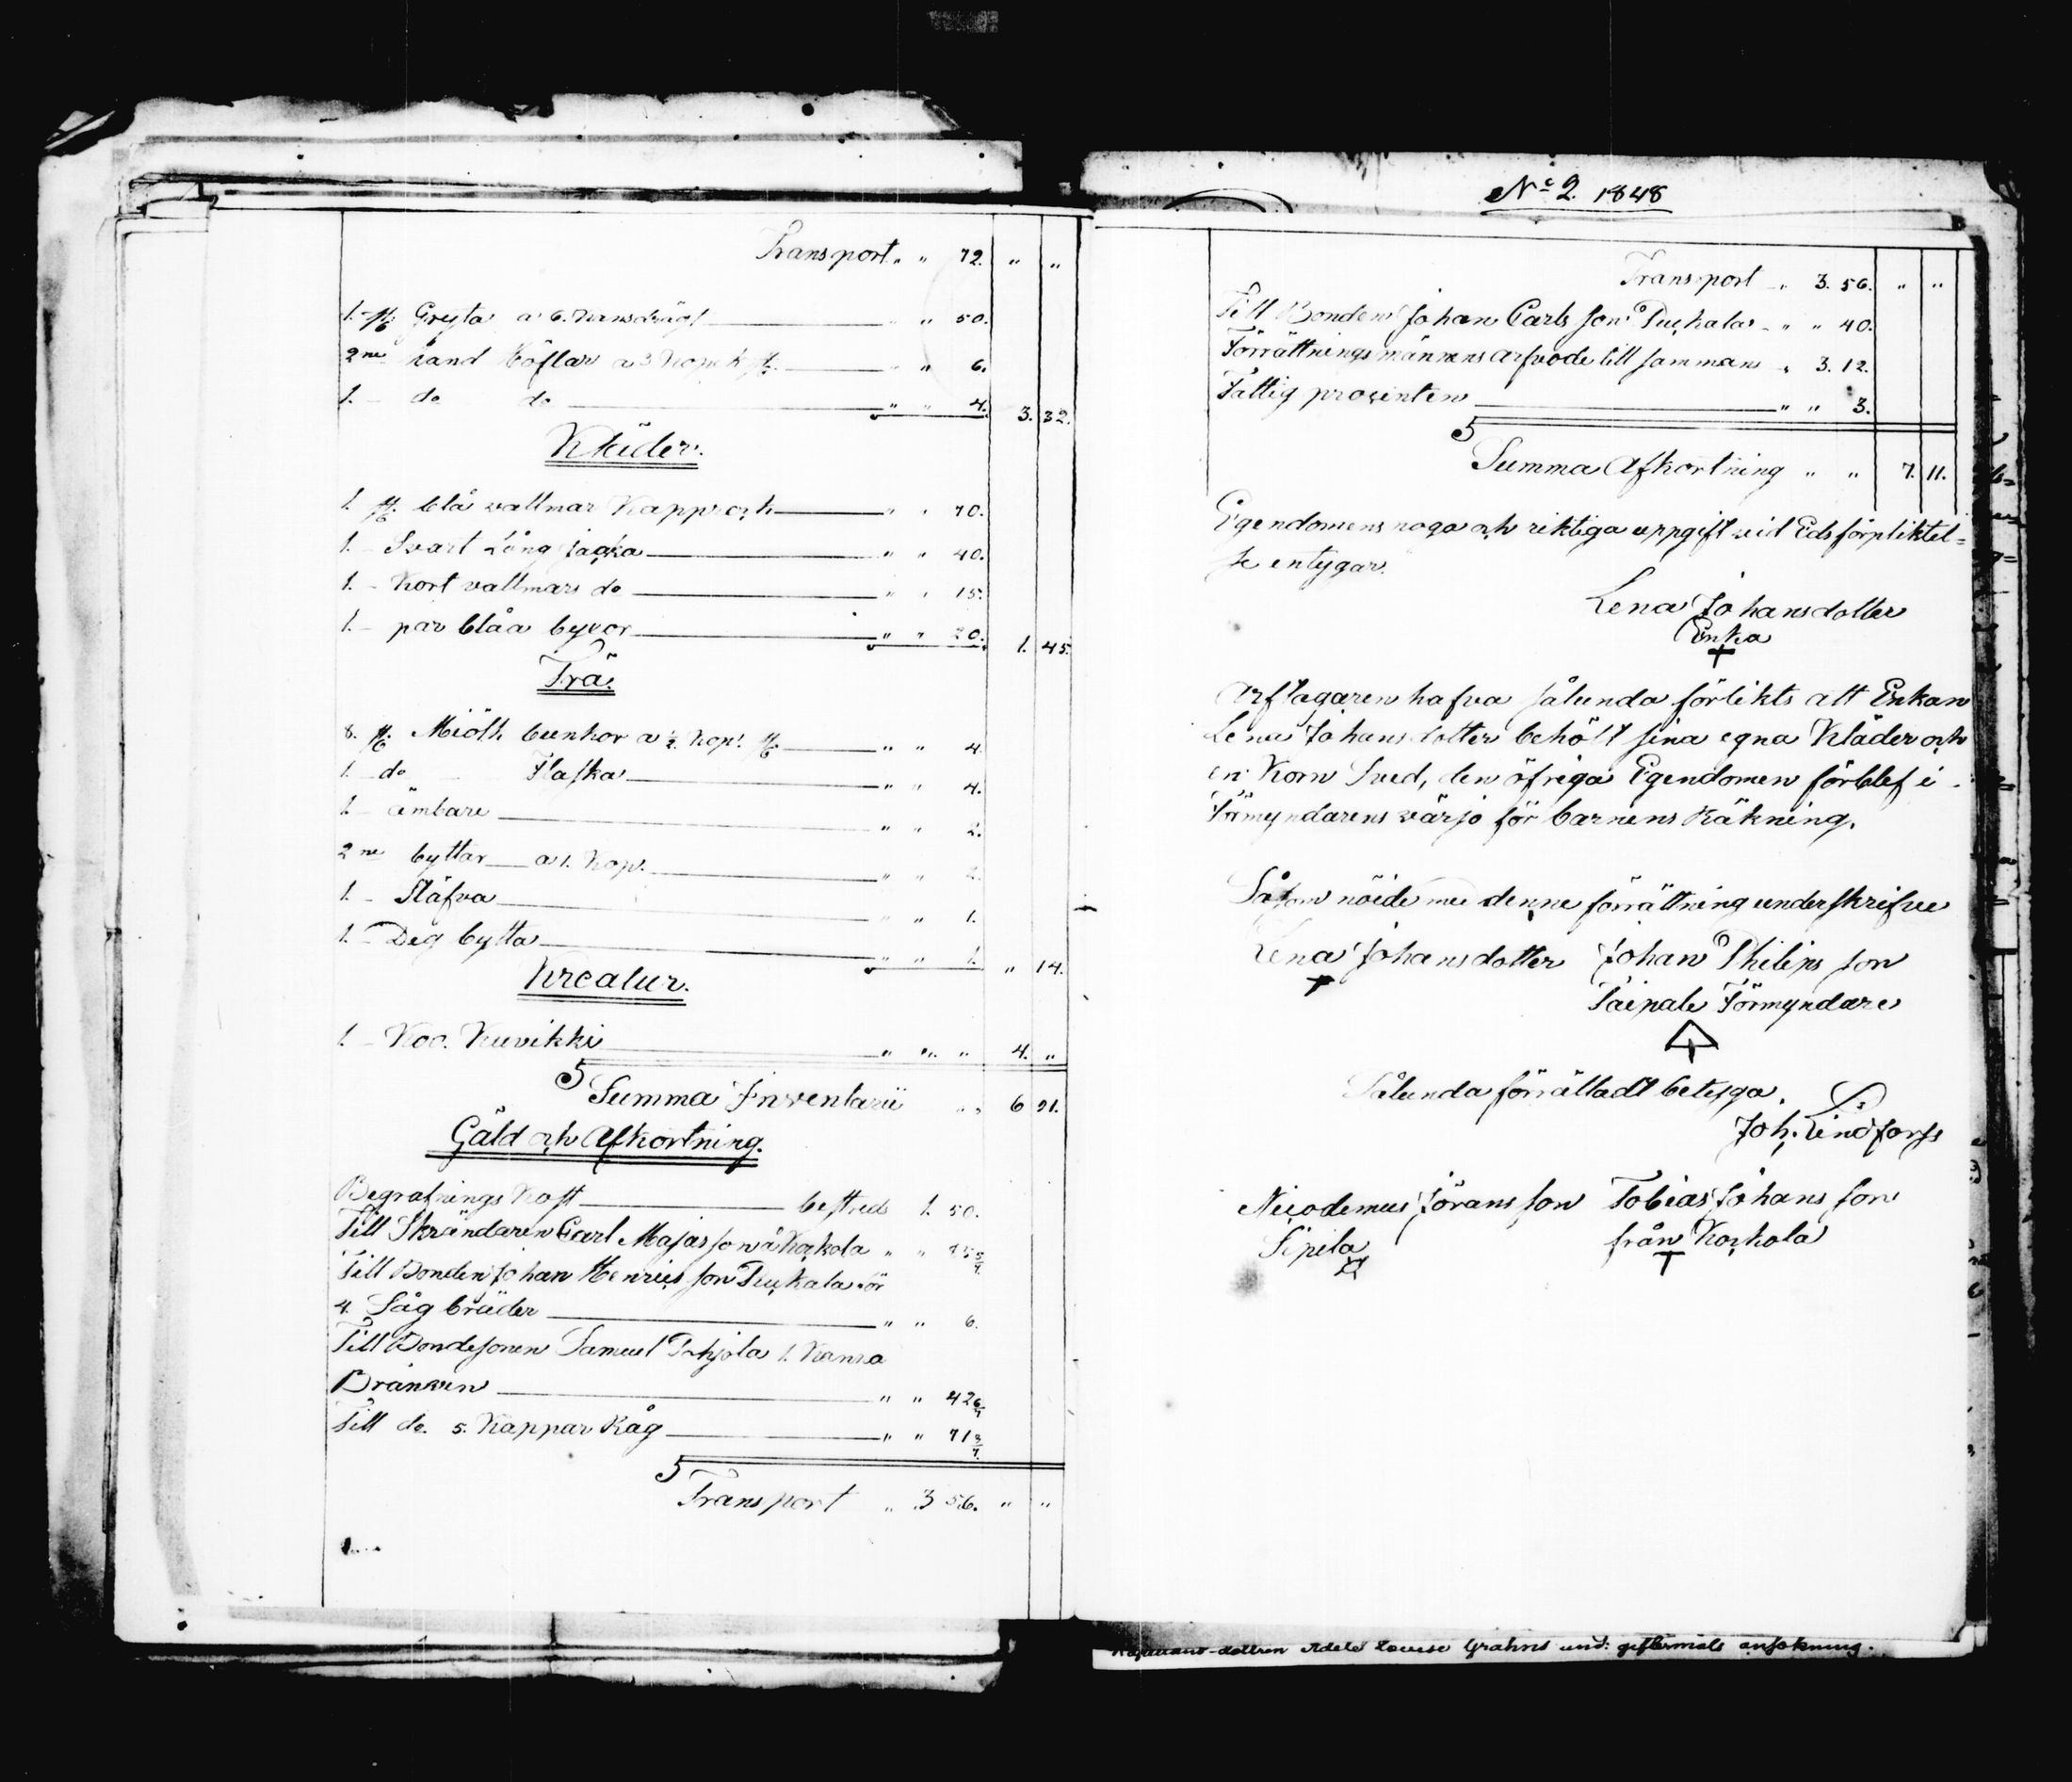 Transport " " 72. " "
1. st. Gryta a 6. " " 50.
2ne rand Töflar a 3 Kopek st. " " 6.
1. do do " " 4. 3. 32.
Kläder.
1. st. blå vallmar Kapprock " " 70.
1. Svart Lång jacka " " 40.
1. Kort vallmars do " " 15.
1. par blåa byxor " " 20. 1. 45.
Trä.
8. st. Miölk bunkor a ½ Kop. st. " " 4.
1. do Flaska " " 4.
1. ämbare " " 2.
2ne byttor a 1. Kop. " " 2.
1. Stäfva " " 1.
1. Deg bytta " " 1. " 14.
Kreatur.
1. Koo. Kuvikki " " " 4. "
S Summa Inventarii " " 6 91.
Gäld och Afkortning.
Begrafnings Kost bestreds 1. 50.
Till Skrändaren Carl Majasson å Korkola " " 85 5/7
Till Bonden Johan Henricsson Puckala för
4. Såg bräder " " 6.
Till Bondesonen Samuel Pohjola 1. Kanna
Bränvin " " 42 6/7
Till do. 5. Kappar Råg " " 71 3/7
S Transport " 3 56. " "
No 2. 1848
Transport " 3. 56. " "
Till Bonden Johan Carlsson Puckala " " 40.
Förrättningsmännens arfvode till samman " 3. 12.
Fattig procenten " " 3.
S Summa Afkortning " " 7. 11.
Egendomens noga och riktiga uppgift vid Edsförpliktel=
se entygar.
Lena Johansdotter
Enka
Arftagaren hafva sålunda förlikts att Enkan
Lena Johansdotter behölt sina egna Kläder och
en Korn Sved, den öfriga Egendomen förblef i
Förmyndarens värjo för barnens Räkning.
Såsom nöide med denne förrättning underskrifve
Lena Johansdotter Johan Philipsson
Taipale Förmyndare
Sålunda förrättadt betyga.
Joh. Lindforss
Nicodemus Jöransson Tobias Johansson
Sipila från Korkola
dottren Adele Louise Grahns und: giftermåls ansökning.